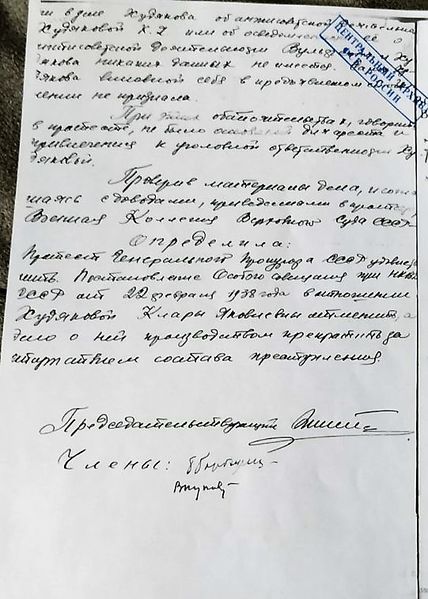 и в деле Худякова об антисоветской деятельно
Худяковой К.Я или об осведомленности её о
антисоветской деятельности
никаких данных не имеется.
виновной себя в предъявленном
не признала.
При этих обстоятельствах, говорит
в протесте, не было оснований для ареста и
привлечения к уголовной ответственности Ху
дяковой.
Проверив материалы дела, и согла
шаясь с доводами, приведенными в протесте,
Военная Коллегия Верховного Суда СССР
Определила:
Протест Генерального Прокурора СССР удовлет
ворить. Постановление Особого совещания при НКВД
СССР от 22 февраля 1938 года в отношении
Худяковой Клары Яковлевны отменить, а
дело о ней производством прекратить за
отсутствием состава преступления.
Председательствующий
Члены:
ЦЕНТРАЛЬНЫЙ АРХИВ
РОССИИ